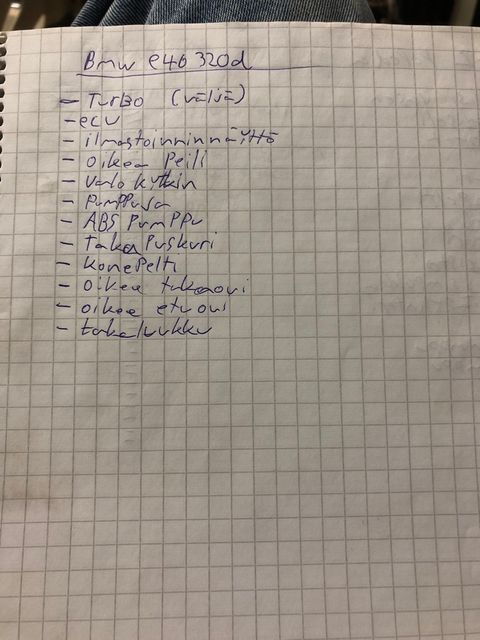 Bmw e46 320d
- Turbo (väljä)
- ecu
- ilmastoinninnäyttö
- oikea Peili
- Valokytkin
- PumPPuja
- ABS PumPPu
- takaPuskuri
- konePelti
- oikea takaovi
- oikea etuovi
- takaluukku